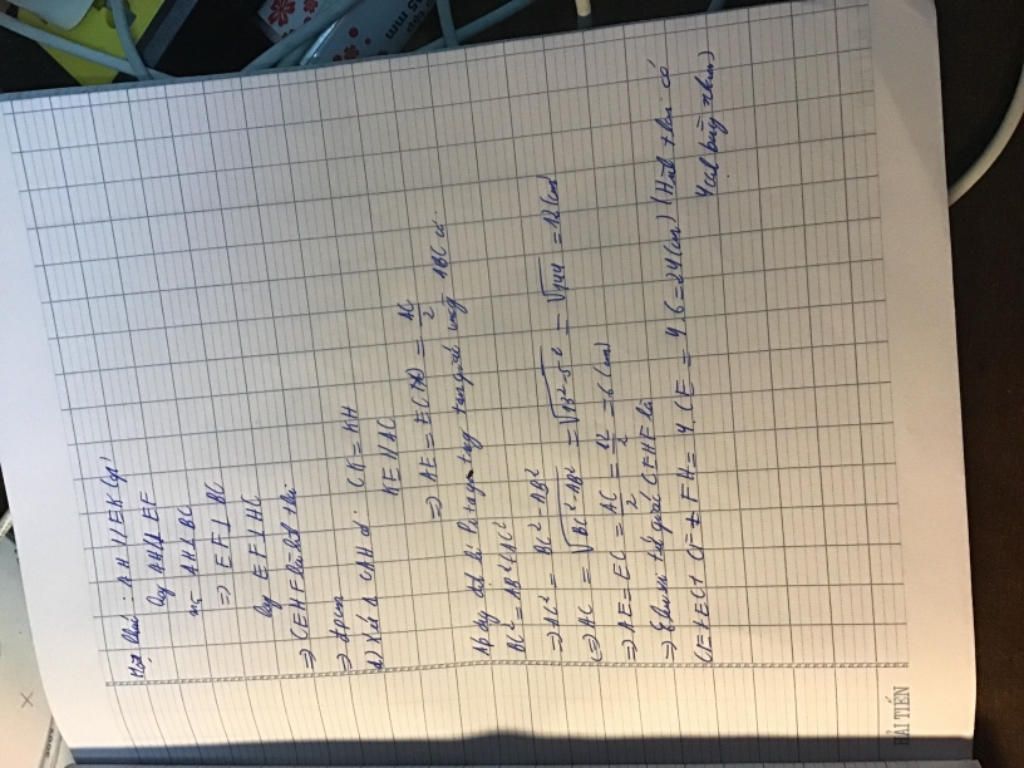 Mặt khác : AH // EK (gt)
hay AH // EF
mà AH ⊥ BC
⇒ EF ⊥ BC
hay EF ⊥ HC
⇒ CEHF là hình thoi
⇒ đpcm
d) Xét Δ CAH có: CK = KH
KE // AC
⇒ AE = EC = AC/2
Áp dụng định lí Pytago trong tam giác vuông ABC có:
BC² = AB² + AC²
⇒ AC² = BC² - AB²
⇔ AC = √BC² - AB² = √13² - 5² = √144 = 12 (cm)
⇒ AE = EC = AC/2 = 12/2 = 6 (cm)
⇒ Chu vi tứ giác CEHF là
CE + EC + CF + FH = 4.CE = 4.6 = 24 (cm) (Hình thoi có
4 cạnh bằng nhau)
HẢI TIẾN
mm